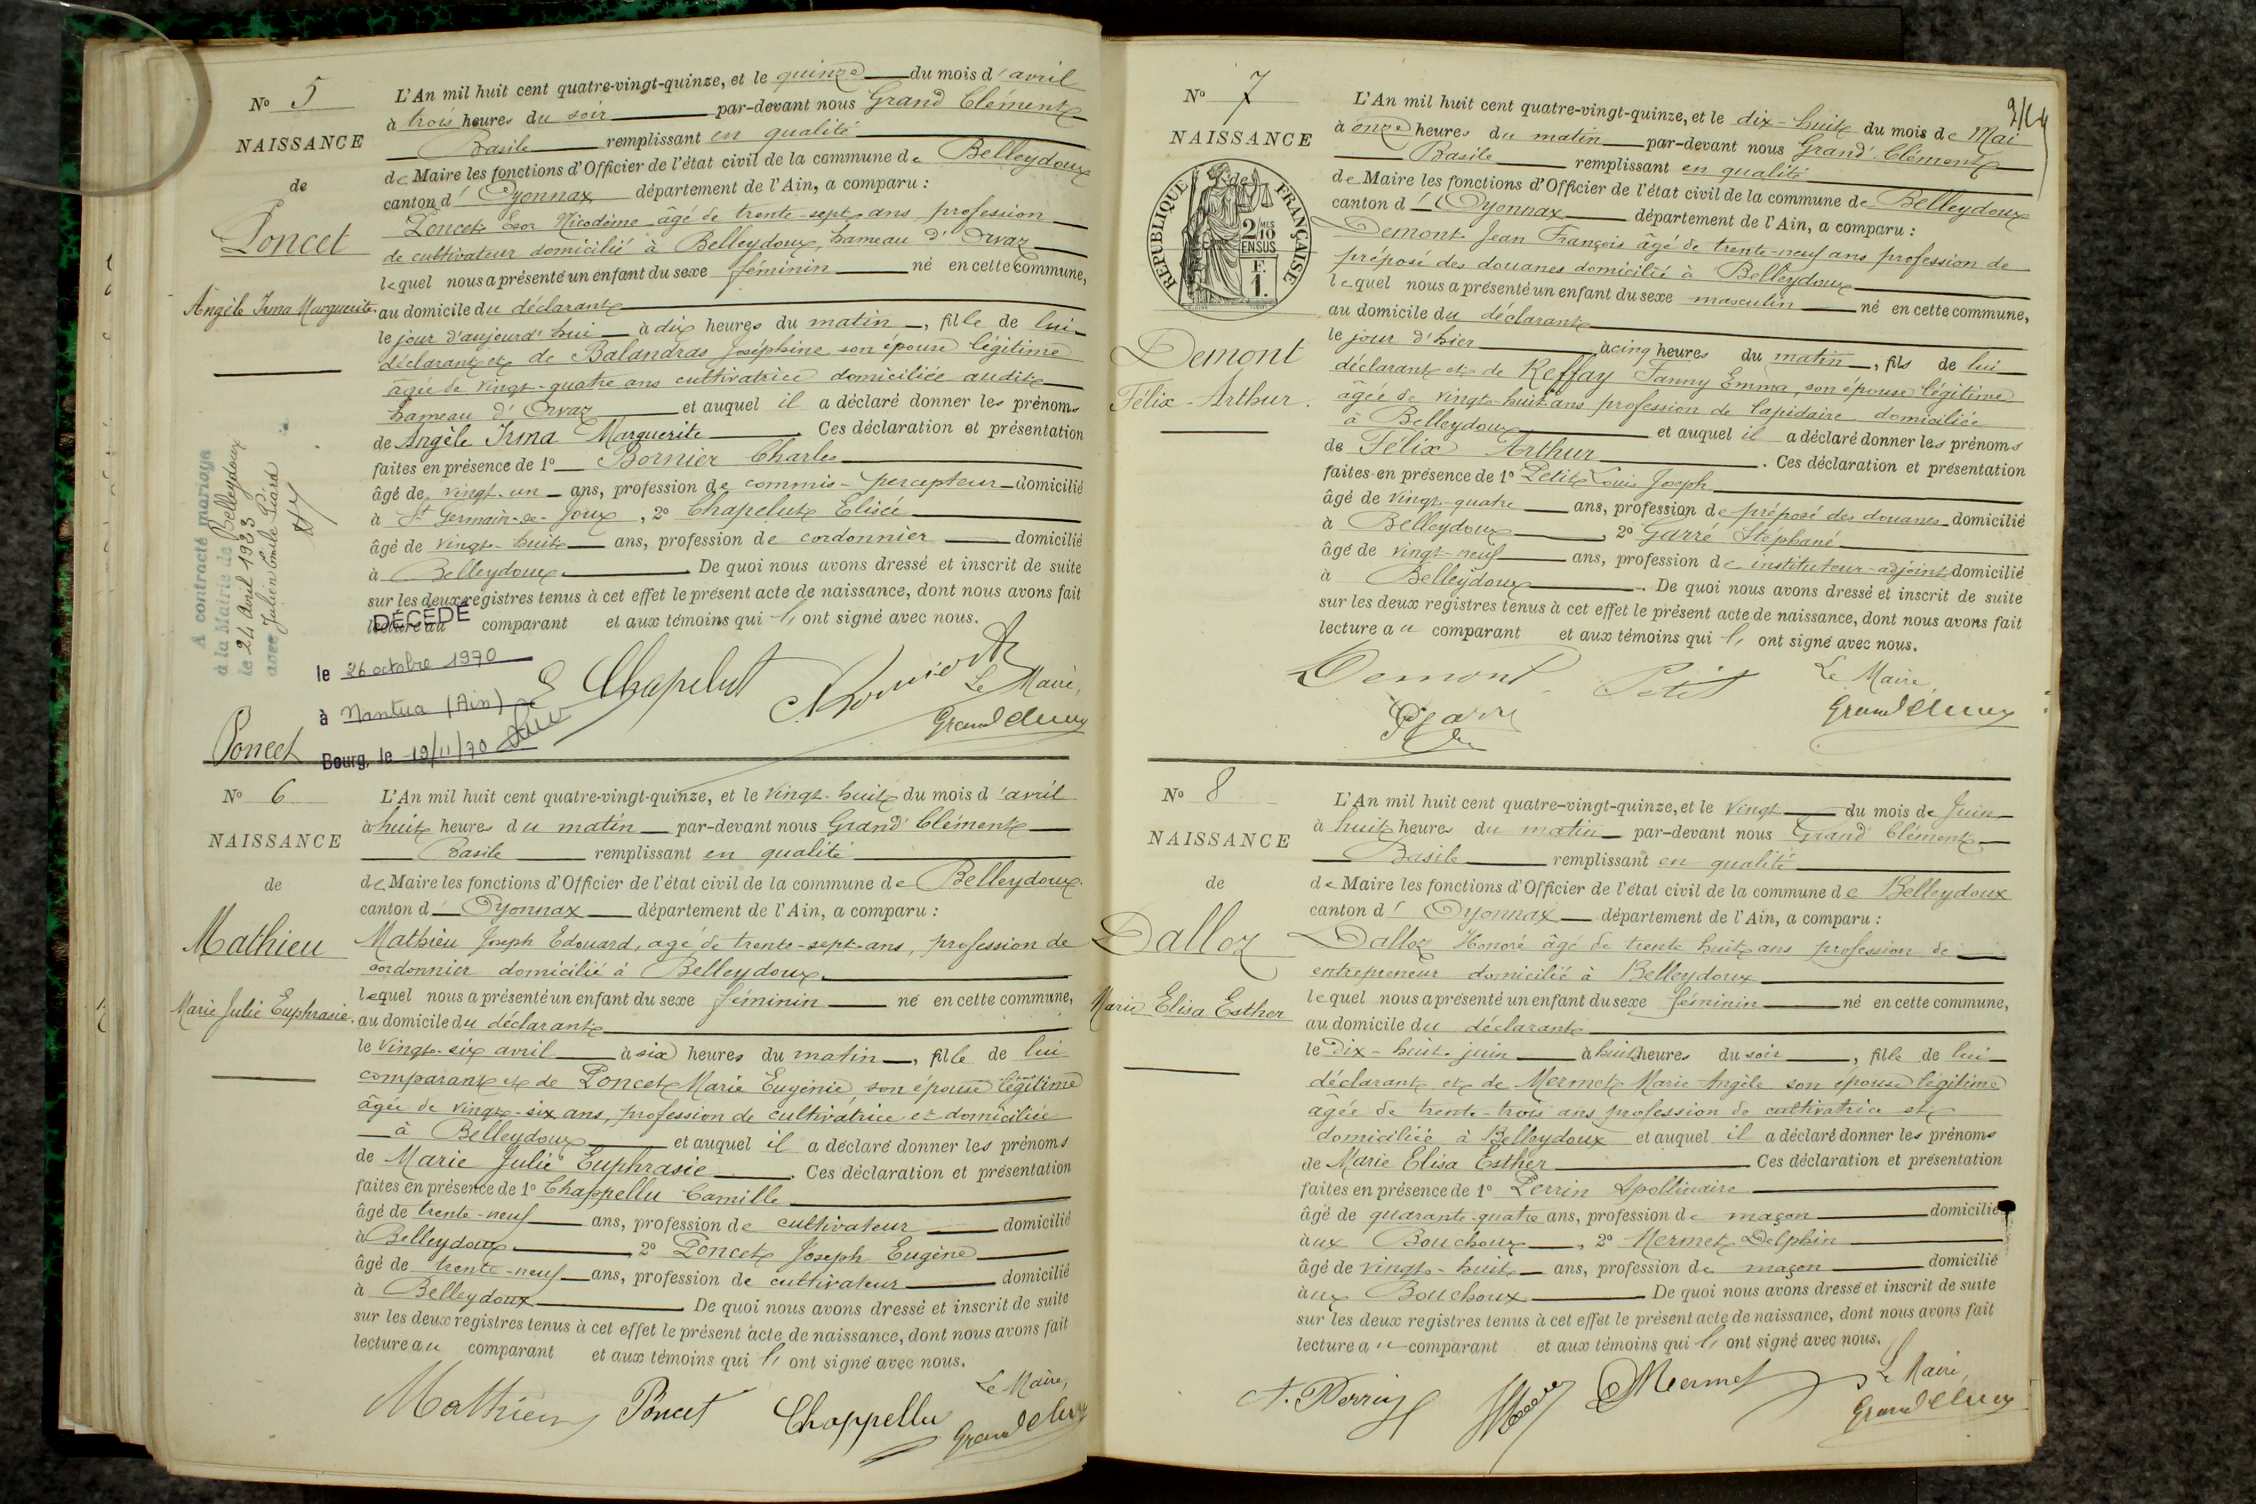 N° 5
NAISSANCE
de
Poncet
Angèle Irma Marguerite
L'An mil huit cent quatre-vingt-quinze, et le quinze du mois d'avril
à trois heures du soir par-devant nous Grand Clément
Basile remplissant en qualité
de Maire les fonctions d'Officier de l'état civil de la commune de Belleydoux
canton d'Oyonnax département de l'Ain, a comparu :
Poncet Nicodème âgé de trente-sept ans profession
de cultivateur domicilié à Belleydoux, hameau d'Orvaz
lequel nous a présenté un enfant du sexe féminin né en cette commune,
au domicile du déclarant
le jour d'aujourd'hui à dix heures du matin, fille de lui
déclarant et de Balandras Joséphine son épouse légitime
âgée de vingt-quatre ans cultivatrice domiciliée audit
hameau d'Orvaz et auquel il a déclaré donner les prénoms
de Angèle Irma Marguerite. Ces déclaration et présentation
faites en présence de 1° Bornier Charles
âgé de vingt-un ans, profession de commis-percepteur domicilié
à St Germain-de-Joux, 2° Chapelut Elisée
âgé de vingt-huit ans, profession de cordonnier domicilié
à Belleydoux. De quoi nous avons dressé et inscrit de suite
sur les deux registres tenus à cet effet le présent acte de naissance, dont nous avons fait
lecture au comparant et aux témoins qui ont signé avec nous.
A contracté mariage
à la Mairie de Belleydoux
le 24 Avril 1933
avec Julien Emile Géard
DÉCÉDÉ
le 26 octobre 1970
à Nantua (Ain)
Bourg, le 19/11/70
Chapelut
Le Maire,
Grand Clément
Poncet
N° 6
NAISSANCE
de
Mathieu
Marie Julie Euphrasie.
L'An mil huit cent quatre-vingt-quinze, et le vingt-huit du mois d'avril
à huit heures du matin par-devant nous Grand Clément
Basile remplissant en qualité
de Maire les fonctions d'Officier de l'état civil de la commune de Belleydoux
canton d'Oyonnax département de l'Ain, a comparu :
Mathieu Joseph Edouard, âgé de trente-sept-ans, profession de
cordonnier domicilié à Belleydoux
lequel nous a présenté un enfant du sexe féminin né en cette commune,
au domicile du déclarant
le vingt-six avril à six heures du matin, fille de lui
comparant et de Poncet Marie Eugénie son épouse légitime
âgée de vingt-six ans, profession de cultivatrice et domiciliée
à Belleydoux et auquel il a déclaré donner les prénoms
de Marie Julie Euphrasie. Ces déclaration et présentation
faites en présence de 1° Chappellu Camille
âgé de trente-neuf ans, profession de cultivateur domicilié
à Belleydoux 2° Poncet Joseph Eugène
âgé de trente-neuf ans, profession de cultivateur domicilié
à Belleydoux. De quoi nous avons dressé et inscrit de suite
sur les deux registres tenus à cet effet le présent acte de naissance, dont nous avons fait
lecture au comparant et aux témoins qui ont signé avec nous.
Le Maire,
Mathieu Poncet Chappellu Grand Clément
2/64
N° 7
NAISSANCE
de
RÉPUBLIQUE FRANÇAISE
2 MES
10
EN SUS
F.
1.
Demont
Félix-Arthur.
L'An mil huit cent quatre-vingt-quinze, et le dix-huit du mois de Mai
à onze heures du matin par-devant nous Grand Clément
Basile remplissant en qualité
de Maire les fonctions d'Officier de l'état civil de la commune de Belleydoux
canton d'Oyonnax département de l'Ain, a comparu :
Demont Jean François âgé de trente-neuf ans profession de
préposé des douanes domicilié à Belleydoux
lequel nous a présenté un enfant du sexe masculin né en cette commune,
au domicile du déclarant
le jour d'hier à cinq heures du matin, fils de lui
déclarant et de Reffay Fanny Emma, son épouse légitime
âgée de vingt-huit ans profession de lapidaire domiciliée
à Belleydoux et auquel il a déclaré donner les prénoms
de Félix Arthur. Ces déclaration et présentation
faites en présence de 1° Petit Louis Joseph
âgé de vingt-quatre ans, profession de préposé des douanes domicilié
à Belleydoux, 2° Garré Stéphané
âgé de vingt-neuf ans, profession de instituteur-adjoint domicilié
à Belleydoux. De quoi nous avons dressé et inscrit de suite
sur les deux registres tenus à cet effet le présent acte de naissance, dont nous avons fait
lecture au comparant et aux témoins qui ont signé avec nous.
Demont Petit Le Maire,
Garré Grand Clément
N° 8
NAISSANCE
de
Dalloz
Marie Elisa Esther
L'An mil huit cent quatre-vingt-quinze, et le vingt du mois de Juin
à huit heures du matin par-devant nous Grand Clément
Basile remplissant en qualité
de Maire les fonctions d'Officier de l'état civil de la commune de Belleydoux
canton d'Oyonnax département de l'Ain, a comparu :
Dalloz Honoré âgé de trente huit ans profession de
entrepreneur domicilié à Belleydoux
lequel nous a présenté un enfant du sexe féminin né en cette commune,
au domicile du déclarant
le dix-huit juin à huit heures du soir, fille de lui
déclarant et de Mermet Marie-Angèle son épouse légitime
âgée de trente-trois ans profession de cultivatrice et
domiciliée à Belleydoux et auquel il a déclaré donner les prénoms
de Marie Elisa Esther Ces déclaration et présentation
faites en présence de 1° Perrin Apollinaire
âgé de quarante-quatre ans, profession de maçon domicilié
aux Bouchoux, 2° Mermet Delphin
âgé de vingt-huit ans, profession de maçon domicilié
aux Bouchoux De quoi nous avons dressé et inscrit de suite
sur les deux registres tenus à cet effet le présent acte de naissance, dont nous avons fait
lecture au comparant et aux témoins qui ont signé avec nous.
A. Perrin Mermet Le Maire,
Grand Clément